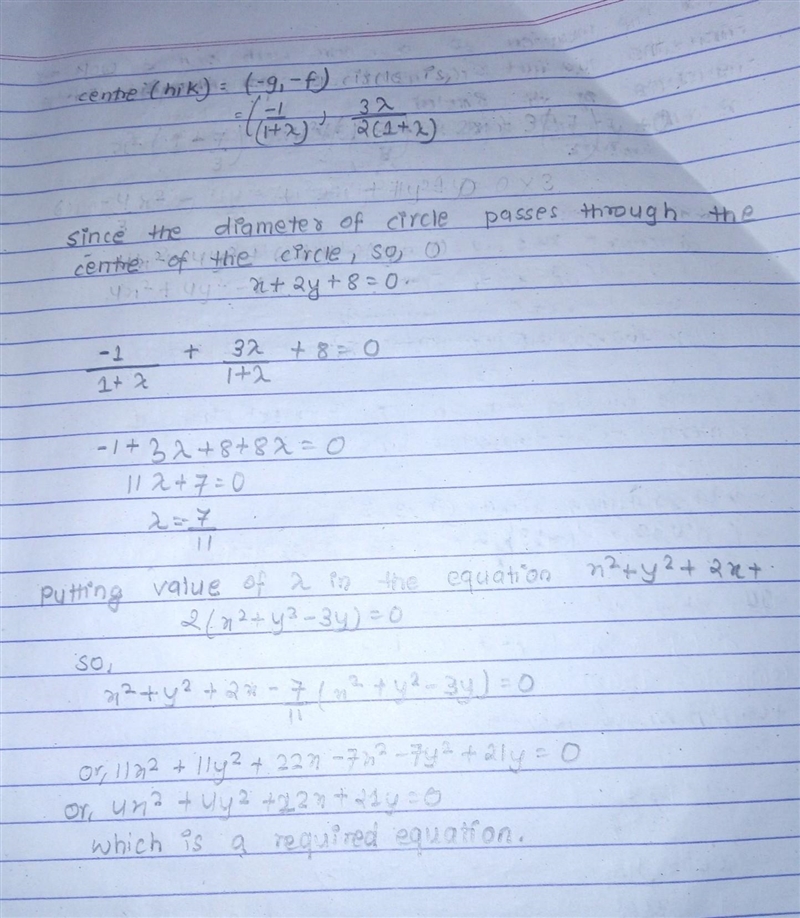 centre (h,k) = (-g, -f)
= (-1/(1+λ), 3λ/2(1+λ)
since the diameter of circle passes through the
centre of the circle, so,
x + 2y + 8 = 0.
-1/1+λ + 3λ/1+λ + 8 = 0
-1 + 3λ + 8 + 8λ = 0
11λ + 7 = 0
λ = -7/11
putting value of λ in the equation x² + y² + 2x +
λ(x² + y² - 3y) = 0
so,
x² + y² + 2x - 7/11 (x² + y² - 3y) = 0
or, 11x² + 11y² + 22x - 7x² - 7y² + 21y = 0
or, 4x² + 4y² + 22x + 21y = 0
which is a required equation.